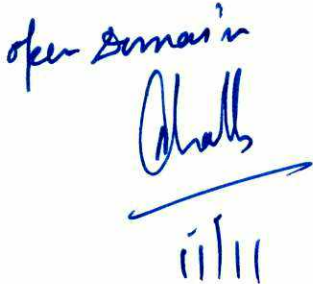 open Domain
11/11